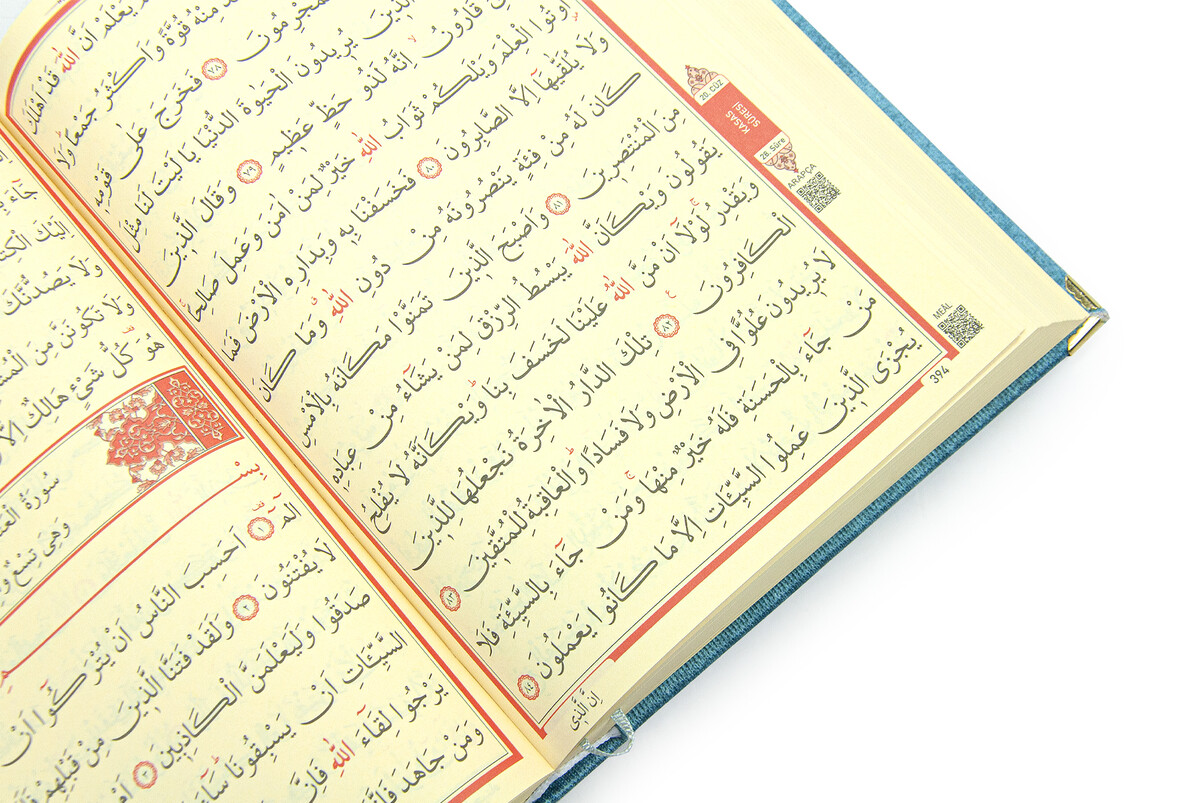 يَعْلَمْ اَنَّ اللّٰهَ قَدْ اَهْلَكَ
مِنْهُ قُوَّةً وَاَكْثَرُ جَمْعًا وَلَا
الْمُجْرِمُونَ ﴿٧٨﴾ فَخَرَجَ عَلٰى قَوْمِهِ
الَّذِينَ يُرِيدُونَ الْحَيٰوةَ الدُّنْيَا يَا لَيْتَ لَنَا مِثْلَ
قَارُونُ اِنَّهُ لَذُو حَظٍّ عَظِيمٍ ﴿٧٩﴾ وَقَالَ الَّذِينَ
اُوتُوا الْعِلْمَ وَيْلَكُمْ ثَوَابُ اللّٰهِ خَيْرٌ لِمَنْ اٰمَنَ وَعَمِلَ صَالِحًا
وَلَا يُلَقّٰيهَا اِلَّا الصَّابِرُونَ ﴿٨٠﴾ فَخَسَفْنَا بِهِ وَبِدَارِهِ الْاَرْضَ فَمَا
كَانَ لَهُ مِنْ فِئَةٍ يَنْصُرُونَهُ مِنْ دُونِ اللّٰهِ وَمَا كَانَ
مِنَ الْمُنْتَصِرِينَ ﴿٨١﴾ وَاَصْبَحَ الَّذِينَ تَمَنَّوْا مَكَانَهُ بِالْاَمْسِ
يَقُولُونَ وَيْكَاَنَّ اللّٰهَ يَبْسُطُ الرِّزْقَ لِمَنْ يَشَاءُ مِنْ عِبَادِهِ
وَيَقْدِرُ لَوْلَا اَنْ مَنَّ اللّٰهُ عَلَيْنَا لَخَسَفَ بِنَا وَيْكَاَنَّهُ لَا يُفْلِحُ
الْكَافِرُونَ ﴿٨٢﴾ تِلْكَ الدَّارُ الْاٰخِرَةُ نَجْعَلُهَا لِلَّذِينَ
لَا يُرِيدُونَ عُلُوًّا فِي الْاَرْضِ وَلَا فَسَادًا وَالْعَاقِبَةُ لِلْمُتَّقِينَ ﴿٨٣﴾
مَنْ جَاءَ بِالْحَسَنَةِ فَلَهُ خَيْرٌ مِنْهَا وَمَنْ جَاءَ بِالسَّيِّئَةِ فَلَا
يُجْزَى الَّذِينَ عَمِلُوا السَّيِّـَٔاتِ اِلَّا مَا كَانُوا يَعْمَلُونَ ﴿٨٤﴾
اِنَّ الَّذِي
20. CÜZ
KASAS
SÛRESİ
28. Sûre
ARAPÇA
MEÂL
394
جَاءَ
اِلَيْكَ
وَلَا يَصُدُّنَّكَ
وَلَا تَكُونَنَّ مِنَ
هُوَ كُلُّ شَيْءٍ هَالِكٌ اِلَّا
سُورَةُ
وَهِيَ تِسْعٌ
الٓمٓ ﴿١﴾ اَحَسِبَ النَّاسُ اَنْ يُتْرَكُوا اَنْ
لَا يُفْتَنُونَ ﴿٢﴾ وَلَقَدْ فَتَنَّا الَّذِينَ مِنْ قَبْلِهِمْ
صَدَقُوا وَلَيَعْلَمَنَّ الْكَاذِبِينَ ﴿٣﴾ اَمْ
السَّيِّـَٔاتِ اَنْ يَسْبِقُونَا سَاءَ
يَرْجُوا لِقَاءَ اللّٰهِ فَاِنَّ
وَمَنْ جَاهَدَ فَاِنَّمَا